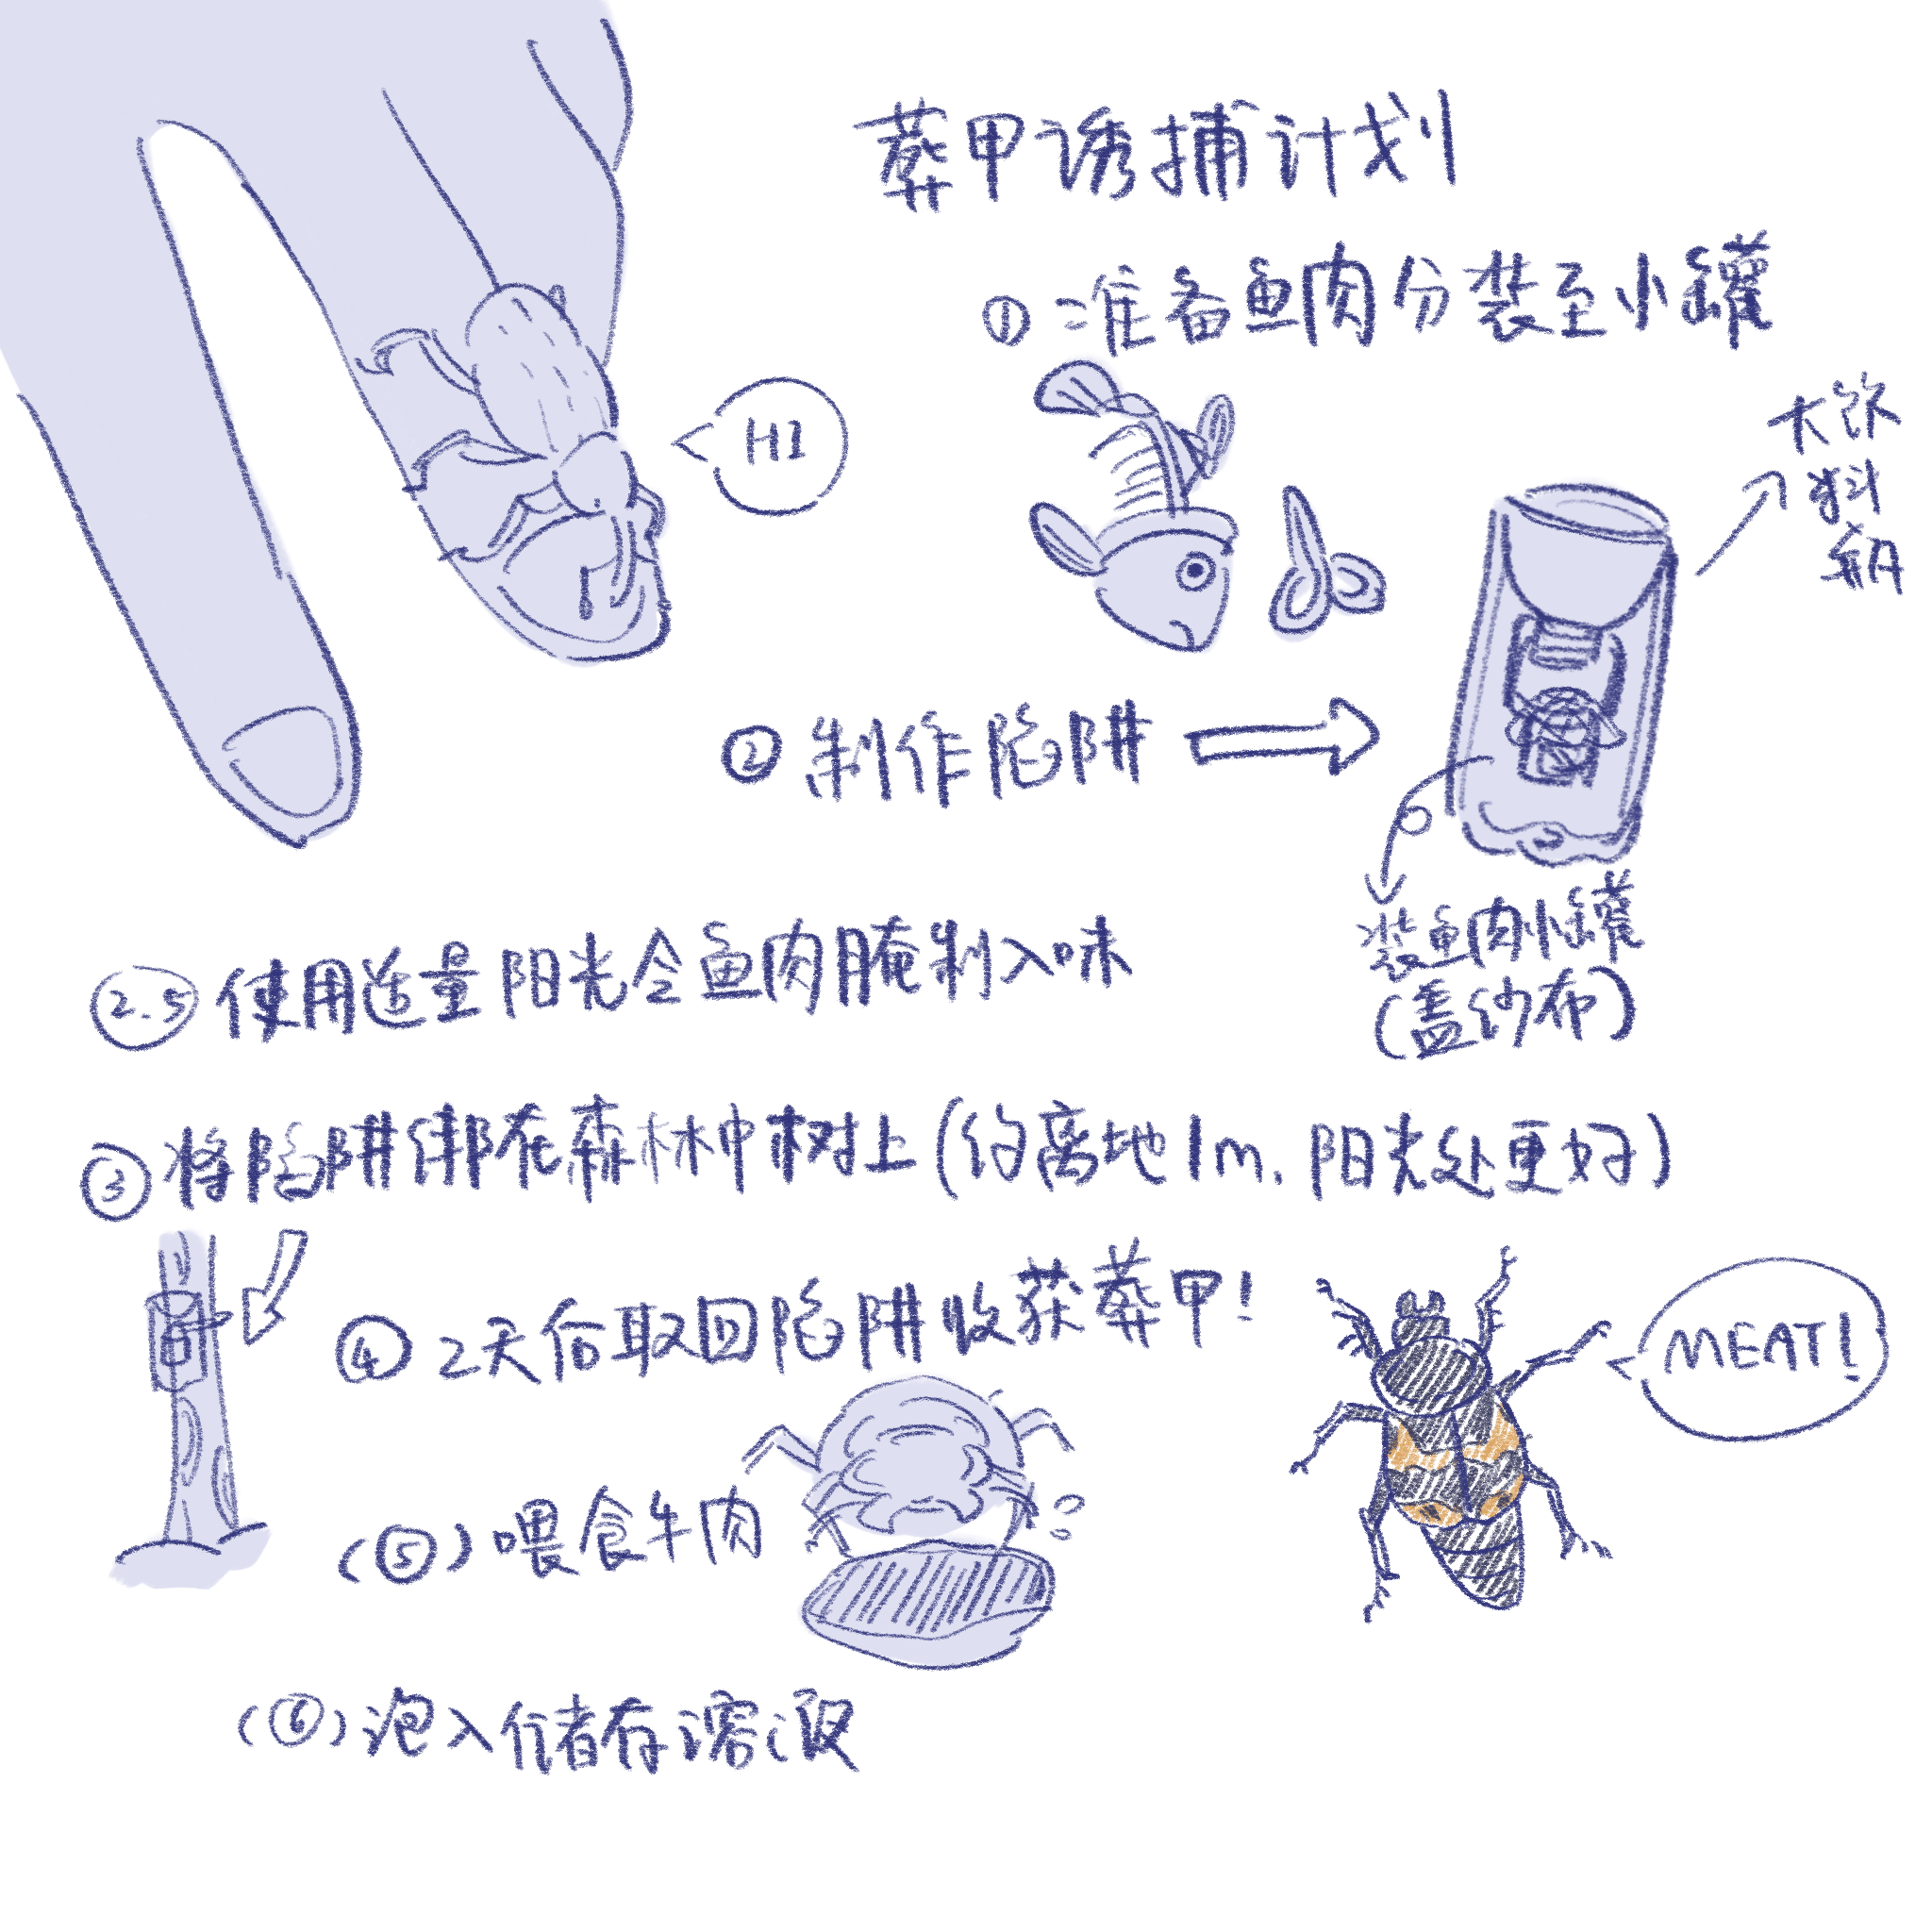 葬甲诱捕计划
① 准备鱼肉分装至小罐
HI
大饮
料
瓶
② 制作陷阱
装鱼肉小罐
(盖纱布)
2.5 使用适量阳光令鱼肉腌制入味
③ 将陷阱绑在森林中树上(约离地1m.阳光处更好)
④ 2天后取回陷阱收获葬甲!
MEAT!
(⑤) 喂食牛肉
(⑥) 泡入储存溶液